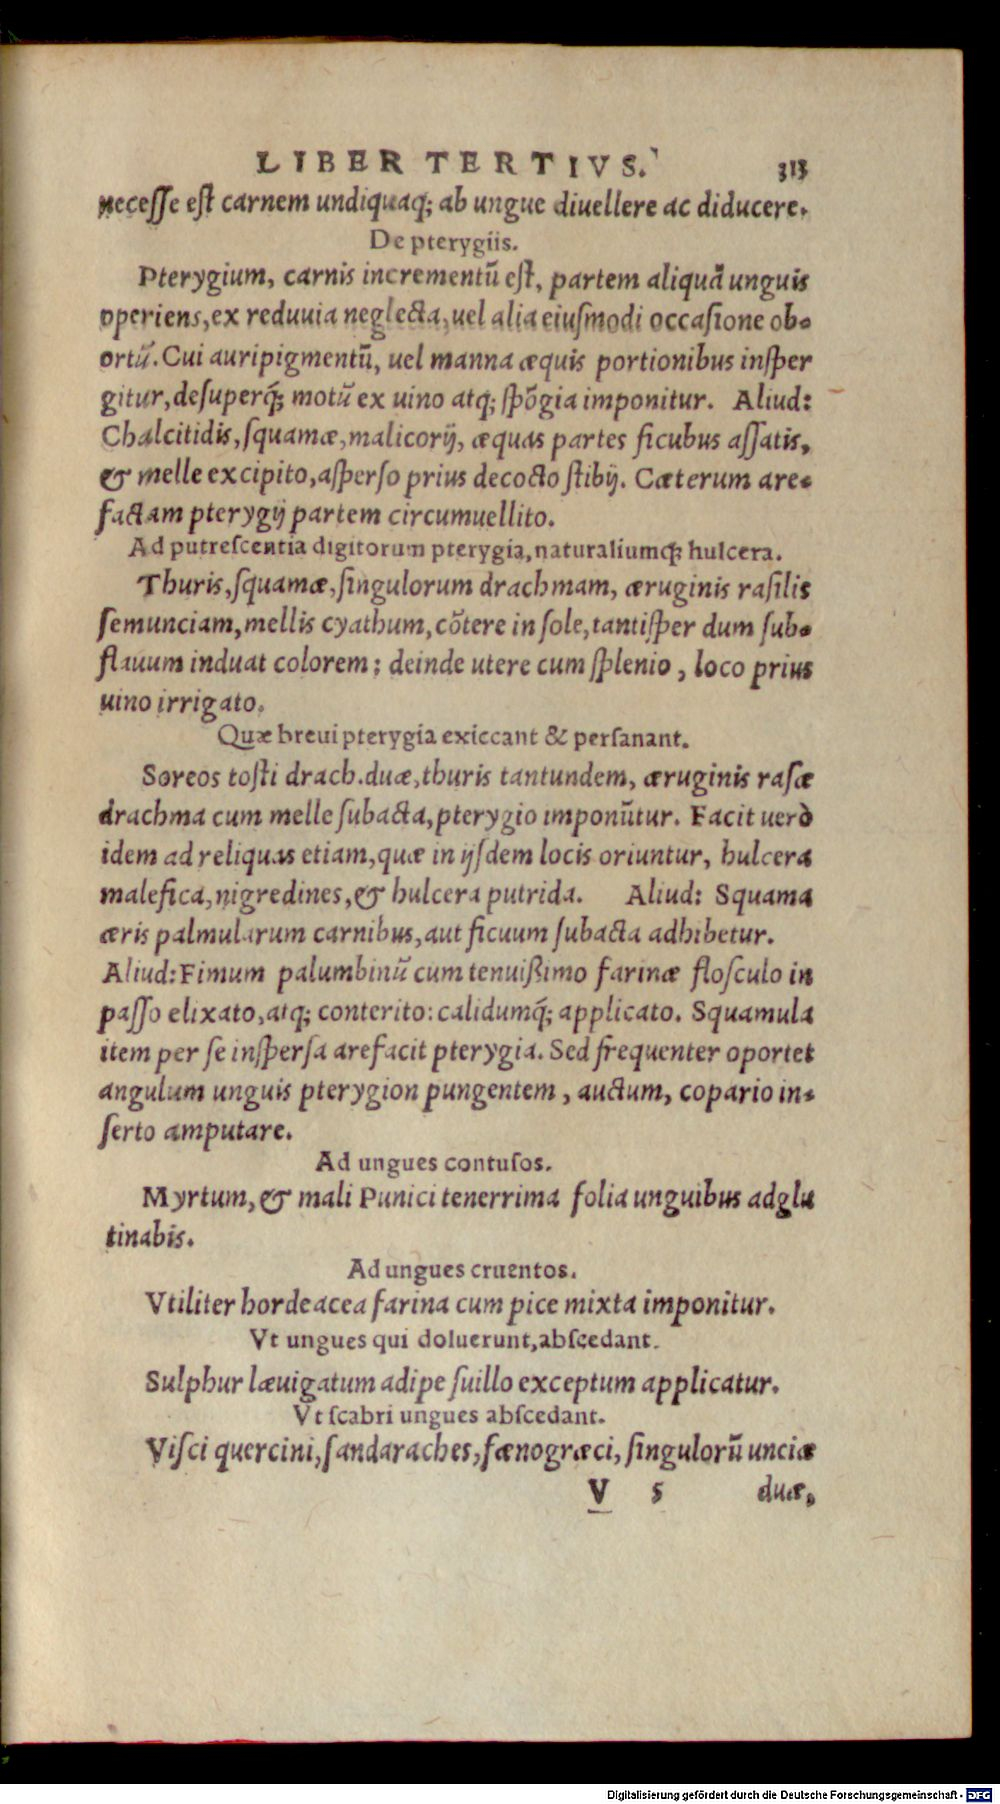 LIBER TERTIVS. 313
necesse est carnem undiquaq; ab ungue diuellere ac diducere.
De pterygiis.
Pterygium, carnis incrementū est, partem aliquā unguis
operiens, ex reduuia neglecta, uel alia eiusmodi occasione ob-
ortū. Cui auripigmentū, uel manna æquis portionibus insper
gitur, desuperq́; motū ex uino atq; spōgia imponitur. Aliud:
Chalcitidis, squamæ, malicorij, æquas partes ficubus assatis,
& melle excipito, asperso prius decocto stibij. Cæterum are-
factam pterygij partem circumuellito.
Ad putrescentia digitorum pterygia, naturaliumq́; hulcera.
Thuris, squamæ, singulorum drachmam, æruginis rasilis
semunciam, mellis cyathum, cōtere in sole, tantisper dum sub-
flauum induat colorem: deinde utere cum splenio, loco prius
uino irrigato.
Quæ breui pterygia exiccant & persanant.
Soreos tosti drach. duæ, thuris tantundem, æruginis rasæ
drachma cum melle subacta, pterygio imponūtur. Facit uerò
idem ad reliquas etiam, quæ in ijsdem locis oriuntur, hulcera
malefica, nigredines, & hulcera putrida. Aliud: Squama
æris palmularum carnibus, aut ficuum subacta adhibetur.
Aliud: Fimum palumbinū cum tenuißimo farinæ flosculo in
passo elixato, atq; conterito: calidumq́; applicato. Squamula
item per se inspersa arefacit pterygia. Sed frequenter oportet
angulum unguis pterygion pungentem, auctum, copario in-
serto amputare.
Ad ungues contusos.
Myrtum, & mali Punici tenerrima folia unguibus adglu
tinabis.
Ad ungues cruentos.
Vtiliter hordeacea farina cum pice mixta imponitur.
Vt ungues qui doluerunt, abscedant.
Sulphur læuigatum adipe suillo exceptum applicatur.
Vt scabri ungues abscedant.
Visci quercini, sandaraches, fænogræci, singulorū unciæ
V 5 duæ,
Digitalisierung gefördert durch die Deutsche Forschungsgemeinschaft - DFG